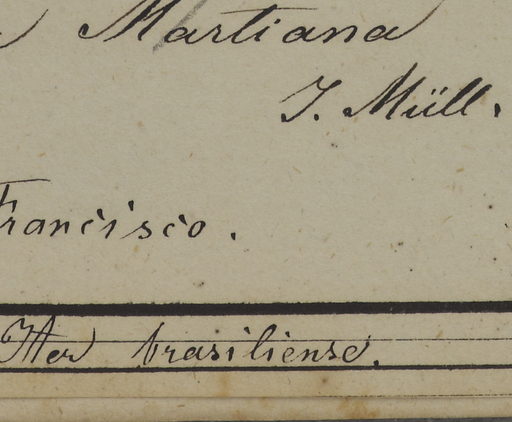 Martiana
J. Müll.
Francisco.
Iter brasiliense.